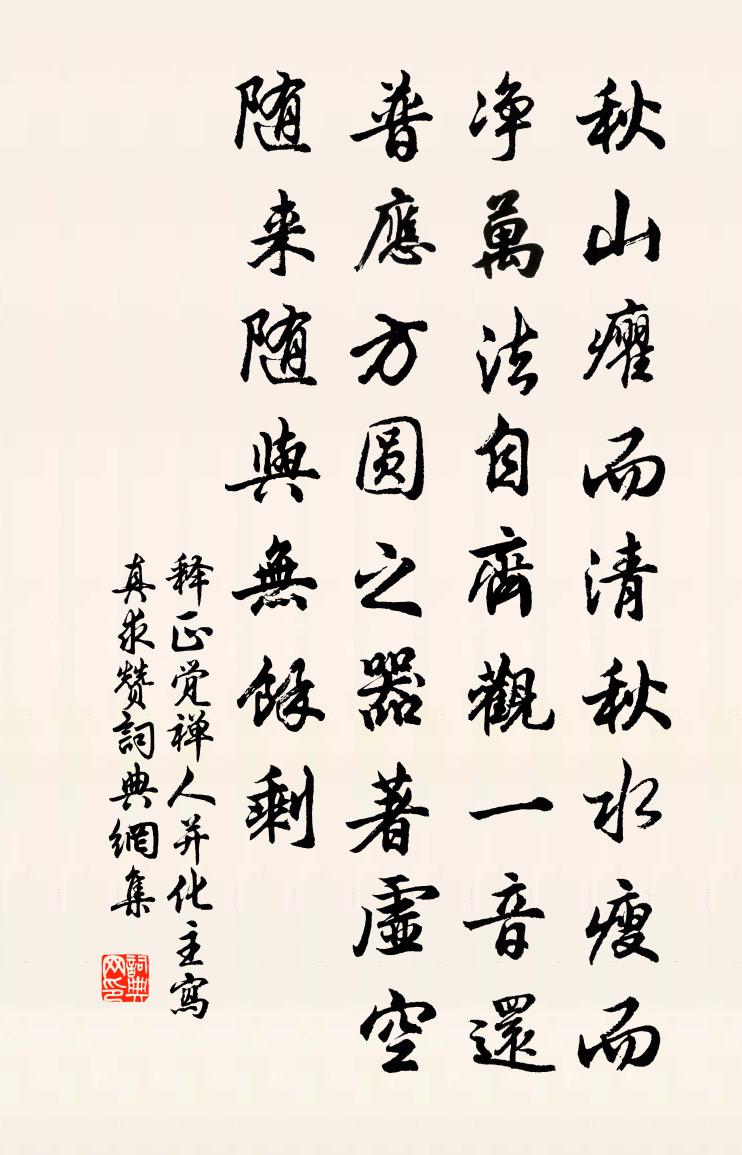 秋山癯而清秋水瘦而
净萬法自齊觀一音還
普應方圆之器著虛空
随来随與無餘剩
释正觉禅人并化主寫
真求赞詞典網集
詞典网印